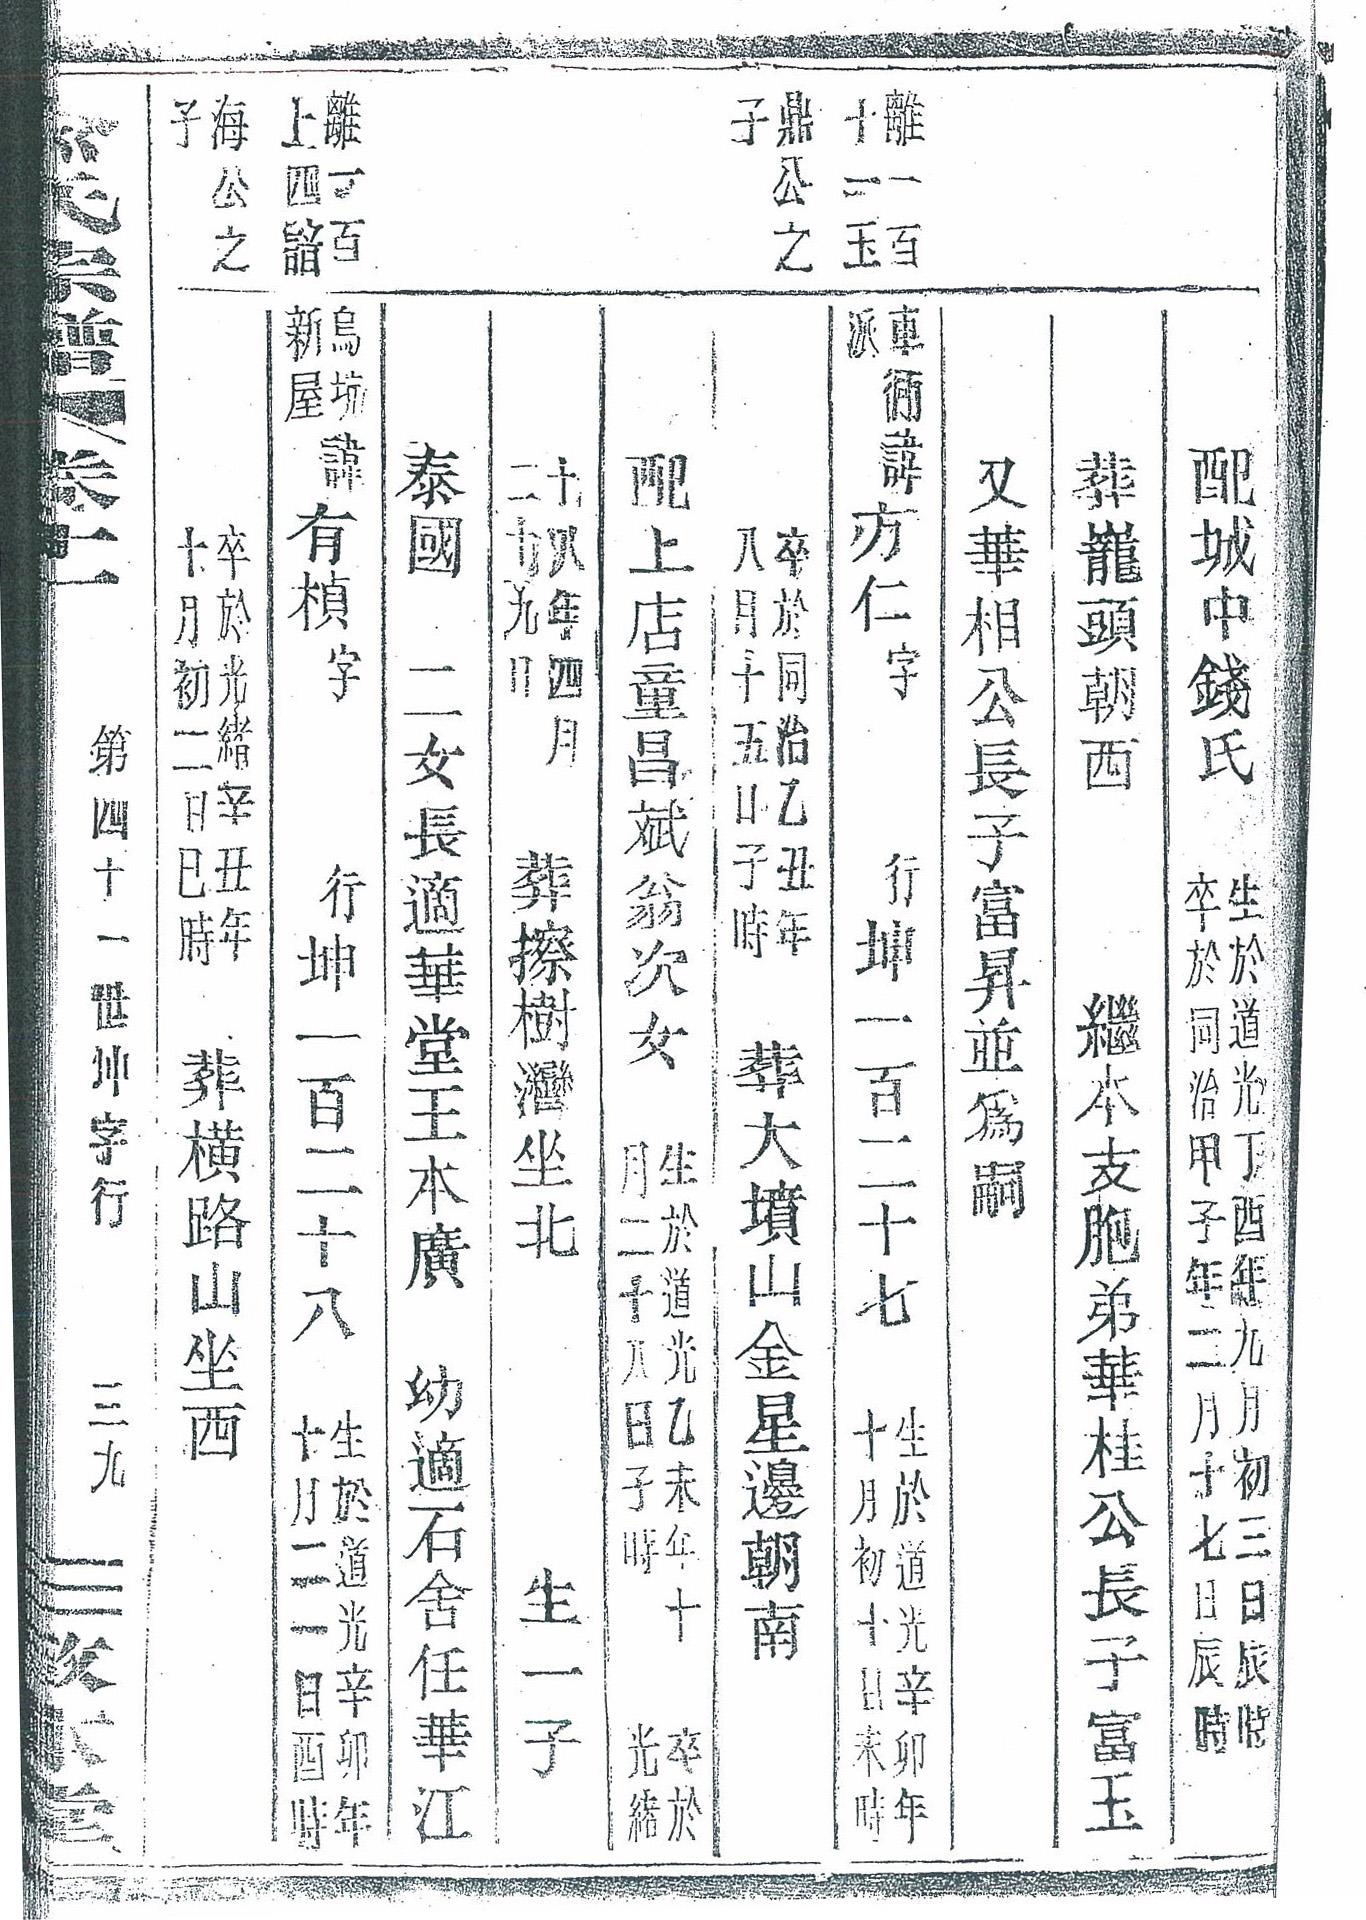 配城中錢氏 生於道光丁酉年九月初三日辰時
卒於同治甲子年二月十七日辰時
葬巃頭朝西 繼本支胞弟華桂公長子富玉
又華相公長子富昇並為嗣
離一百
十二玉
鼎公之
子
車衕
派
諱方仁字 行坤一百二十七 生於道光辛卯年
十月初十日未時
卒於同治乙丑年
八月十五日子時 葬大墳山金星邊朝南
配上店童昌斌翁次女 生於道光乙未年十
月二十八日子時 卒於
光緒
十八年四月
二十九日 葬擦樹灣坐北 生一子
泰國 二女長適華堂王本廣 幼適石舍任華江
離一百
上四諮
海公之
子
烏坑
新屋
諱有楨字 行坤一百二十八 生於道光辛卯年
十月二一日酉時
卒於光緒辛丑年
十月初二日巳時 葬橫路山坐西
氏宗譜 卷 第四十一世坤字行 三九 敦